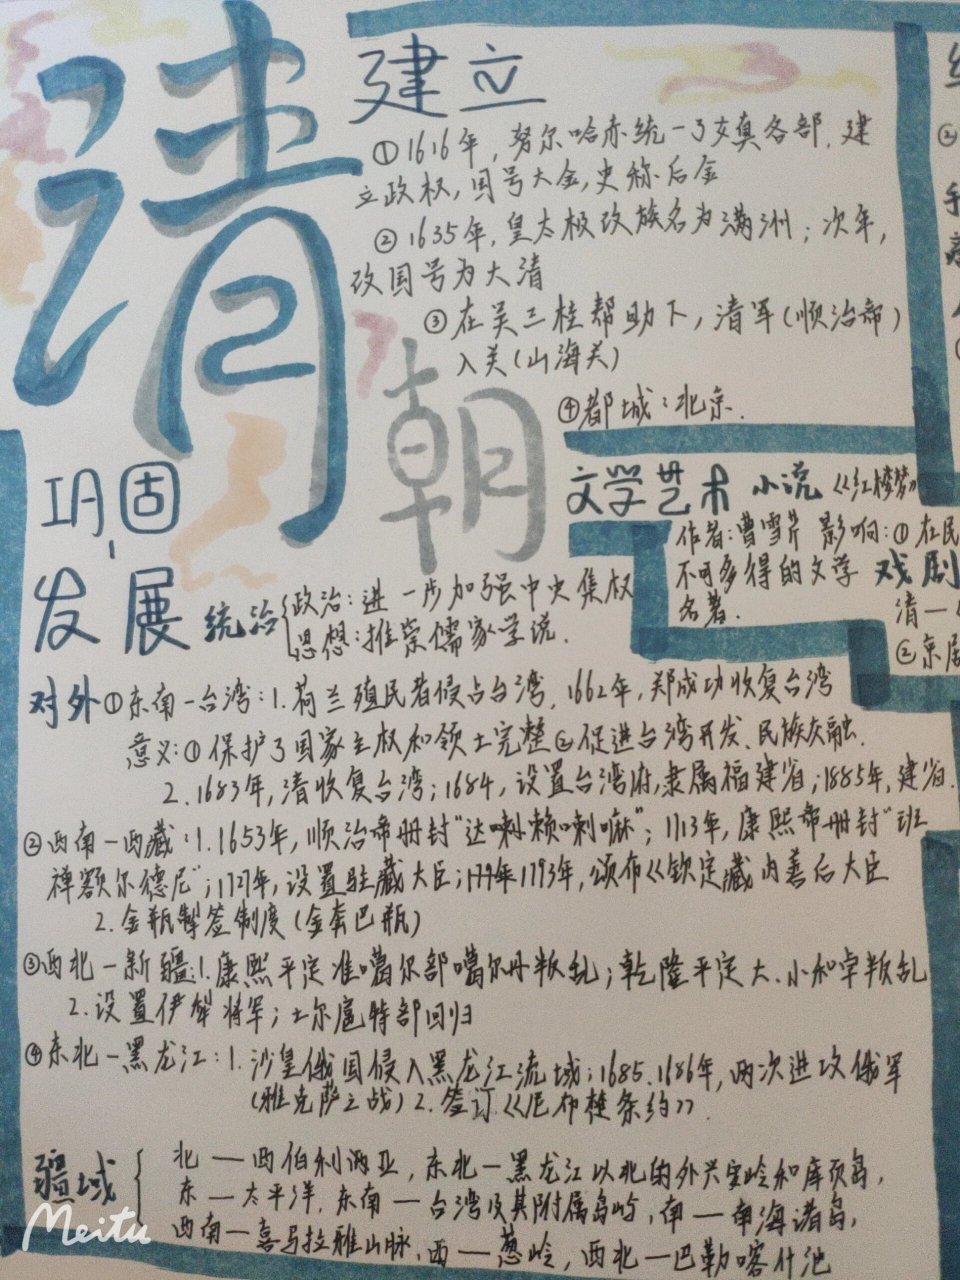 清朝
建立
①1616年，努尔哈赤统一了女真各部，建
立政权，国号大金，史称后金
②1635年，皇太极改族名为满洲；次年，
改国号为大清
③在吴三桂帮助下，清军（顺治帝）
入关（山海关）
④都城：北京.
文学艺术 小说《红楼梦》
作者：曹雪芹 影响：①在民
不可多得的文学 戏剧
名著. 清一
②京剧
巩固
发展
统治 政治：进一步加强中央集权
思想：推崇儒家学说.
对外①东南-台湾：1.荷兰殖民者侵占台湾，1662年，郑成功收复台湾
意义：①保护了国家主权和领土完整②促进台湾开发、民族交融.
2.1683年，清收复台湾；1684，设置台湾府，隶属福建省；1885年，建省.
②西南-西藏：1.1653年，顺治帝册封“达喇赖喇嘛”；1713年，康熙帝册封“班
禅额尔德尼”；1727年，设置驻藏大臣；1793年，颁布《钦定藏内善后大臣
2.金瓶掣签制度（金奔巴瓶）
③西北-新疆：1.康熙平定准噶尔部噶尔丹叛乱；乾隆平定大、小和卓叛乱
2.设置伊犁将军；土尔扈特部回归
④东北-黑龙江：1.沙皇俄国侵入黑龙江流域；1685.1686年，两次进攻俄军
（雅克萨之战）2.签订《尼布楚条约》.
疆域
北—西伯利亚，东北-黑龙江以北的外兴安岭和库页岛，
东—太平洋，东南—台湾及其附属岛屿，南—南海诸岛，
西南—喜马拉雅山脉，西—葱岭，西北—巴勒喀什池
Meitu